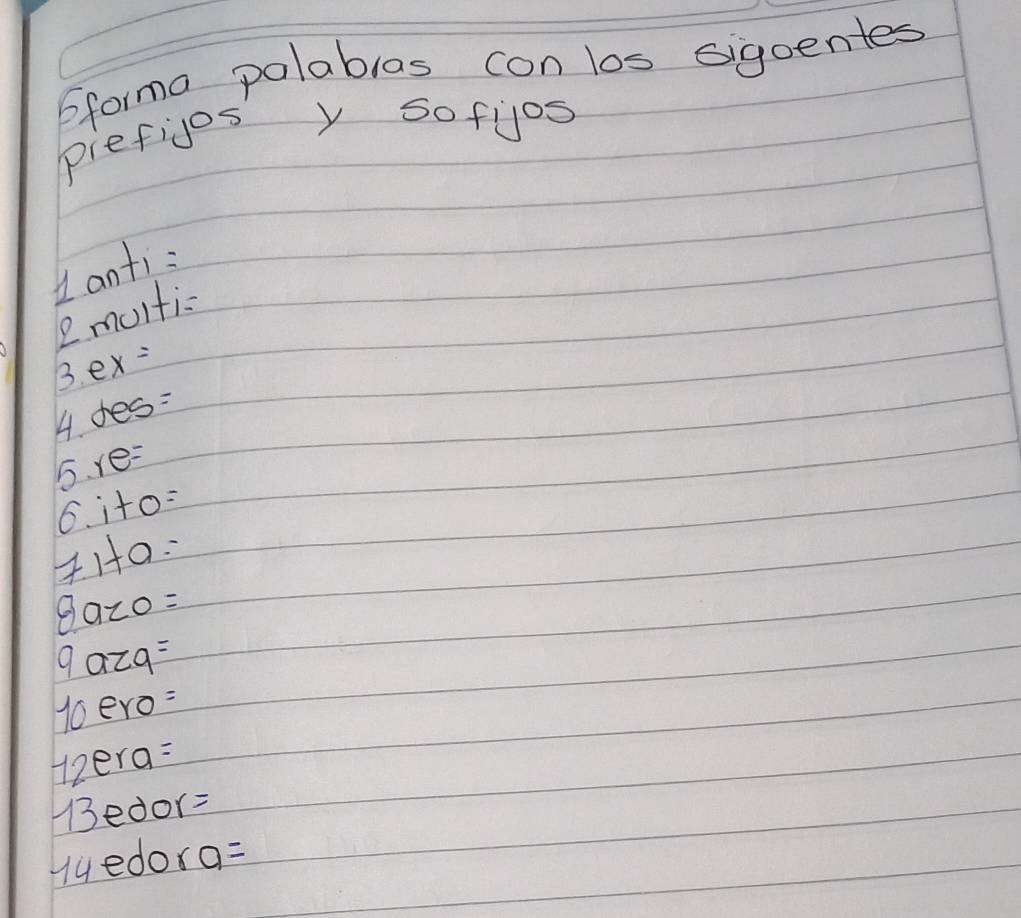 5 forma palabras con los sigoentes
prefijos y sofijos
1 anti=
2 molti=
3. ex=
4. des=
5. re=
6. ito=
7 ita=
8. azo=
9 aza=
10 ero=
12 era=
13 edor=
14 edora=